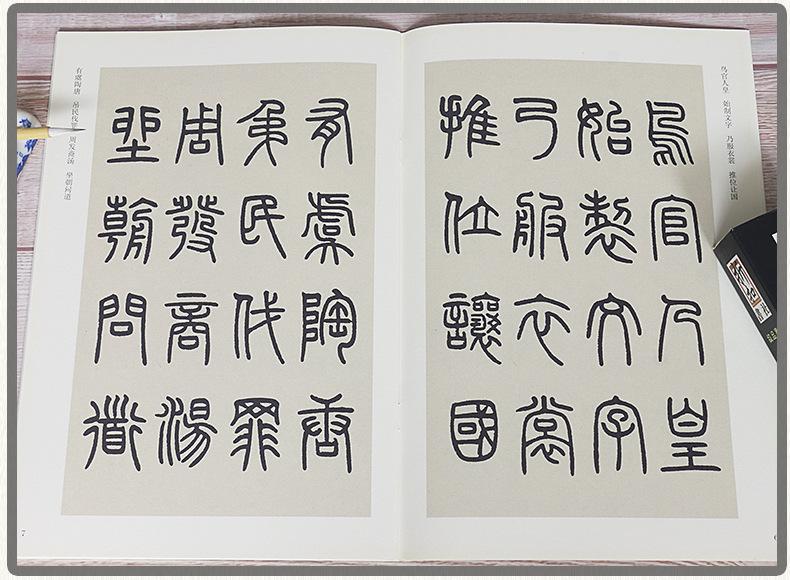 鸟官人皇　始制文字　乃服衣裳　推位让国
鳥官人皇
始製文字
乃服衣裳
推位讓國
有虞陶唐
弔民伐罪
周發商湯
坐朝問道
有虞陶唐　吊民伐罪　周发商汤　坐朝问道
7